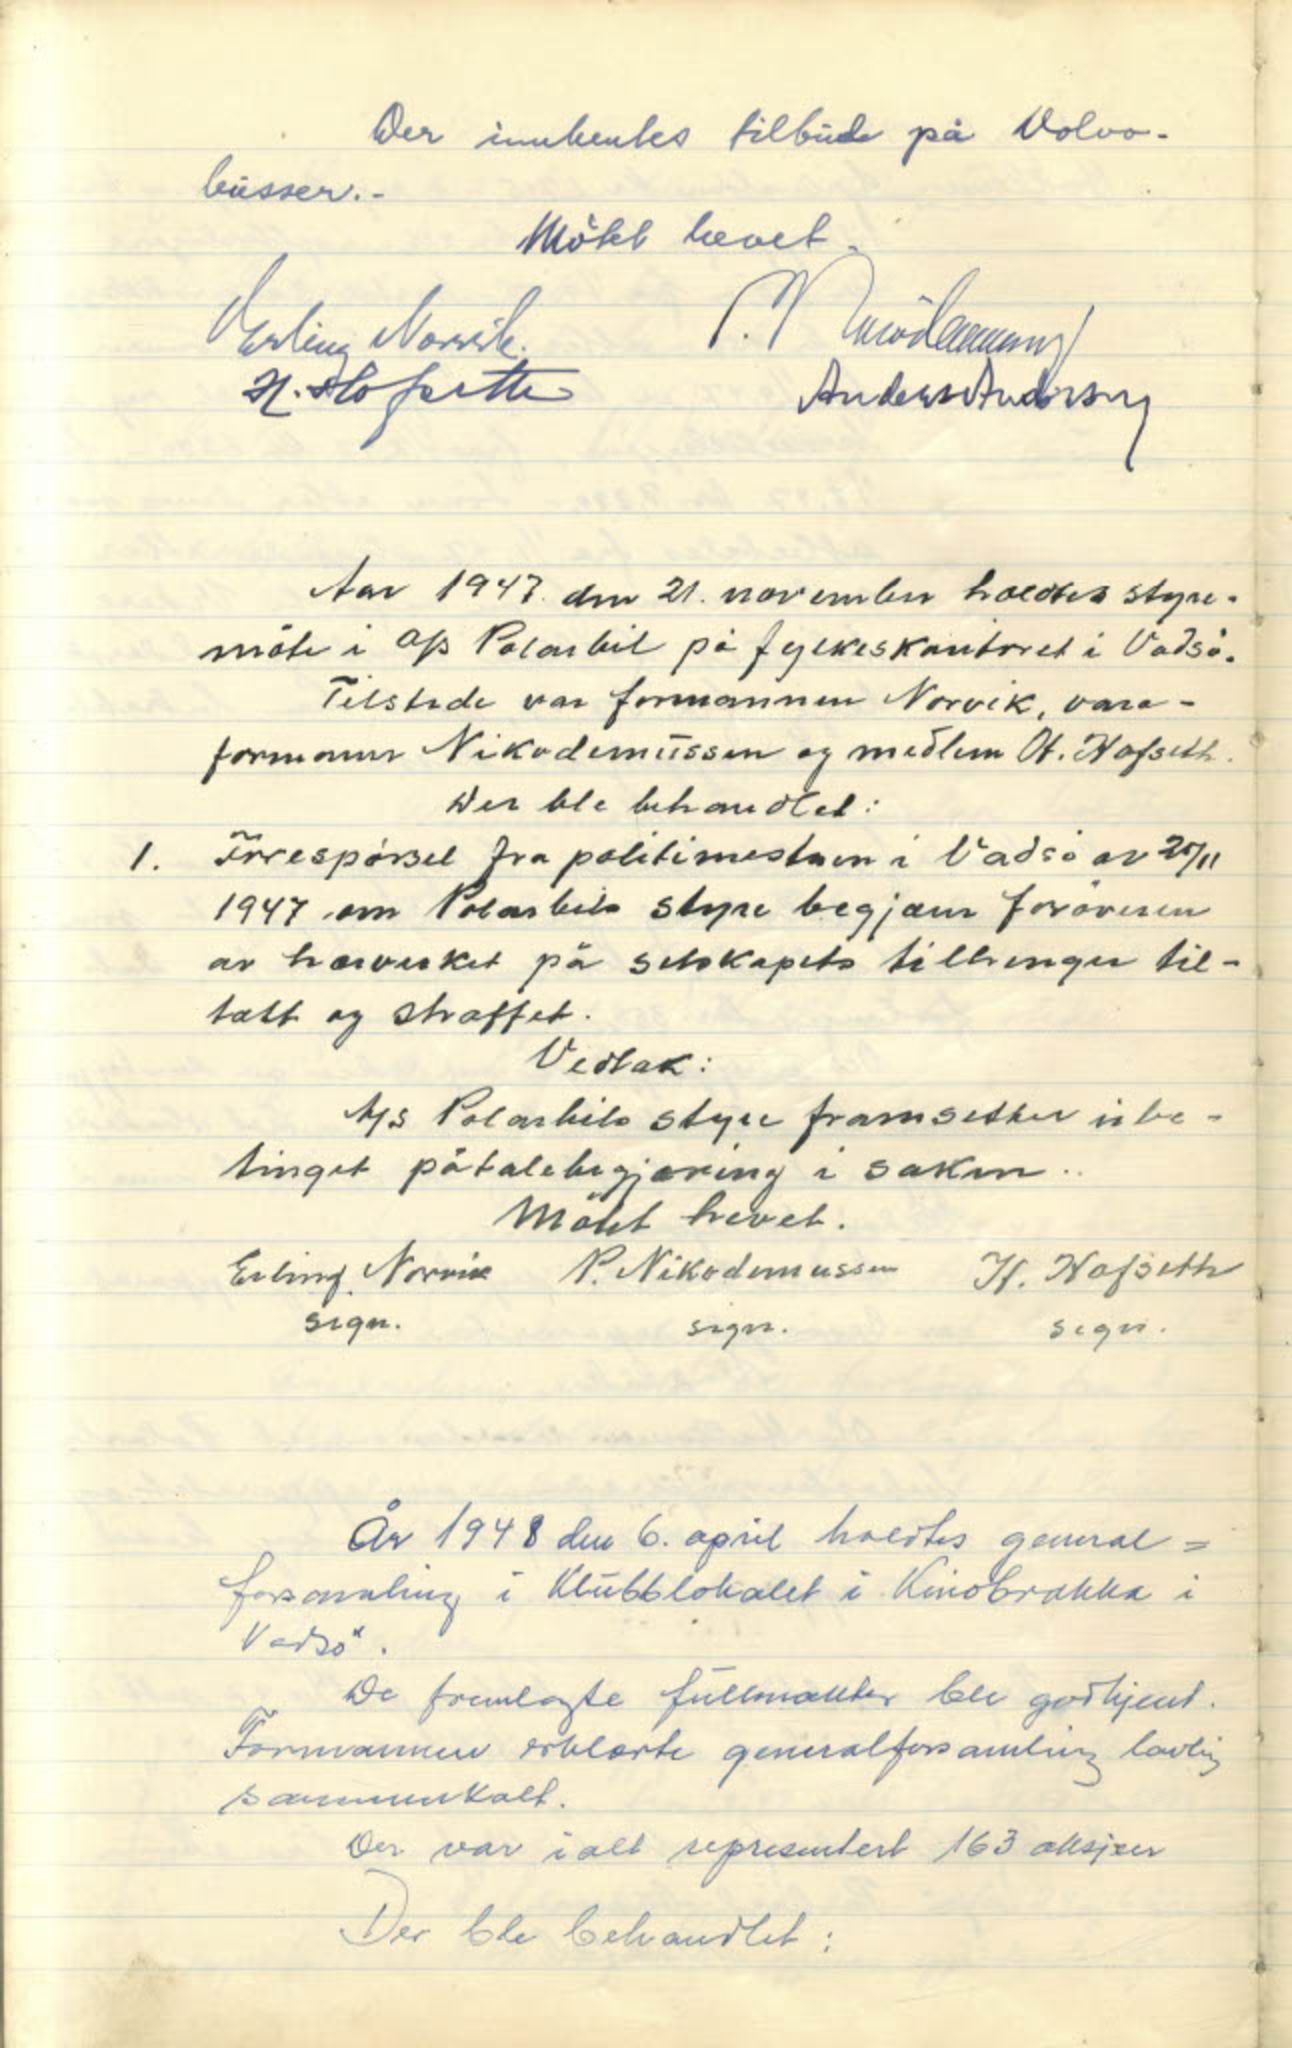 Der innhentes tilbud på Volvo-
busser.-
Møtet hevet.
Erling Norvik. P. Nikodemussen
H. Hofseth Anders Andersen
Aar 1947 den 21. november holdtes styre-
möte i A/s Polarbil på fylkeskontoret i Vadsö.
Tilstede var formannen Norvik, vara-
formann Nikodemussen og medlem H. Hofseth.
Der ble behandlet:
1. Forespörsel fra politimesteren i Vadsö av 20/11
1947 om Polarbils styre begjærer foröveren
av hærverket på selskapets tilhenger til-
talt og straffet.
Vedtak:
A/s Polarbils styre framsetter ube-
tinget påtalebegjæring i saken.
Mötet hevet.
Erling Norvik P. Nikodemussen H. Hofseth
sign. sign. sign.
År 1948 den 6. april holdtes general=
forsamling i Klubblokalet i Kinobrakka i
Vadsö.
De fremlagte fullmakter ble godkjent.
Formannen erklærte generalforsamling lovlig
sammenkalt.
Der var i alt representert 163 aksjer
Der ble behandlet: